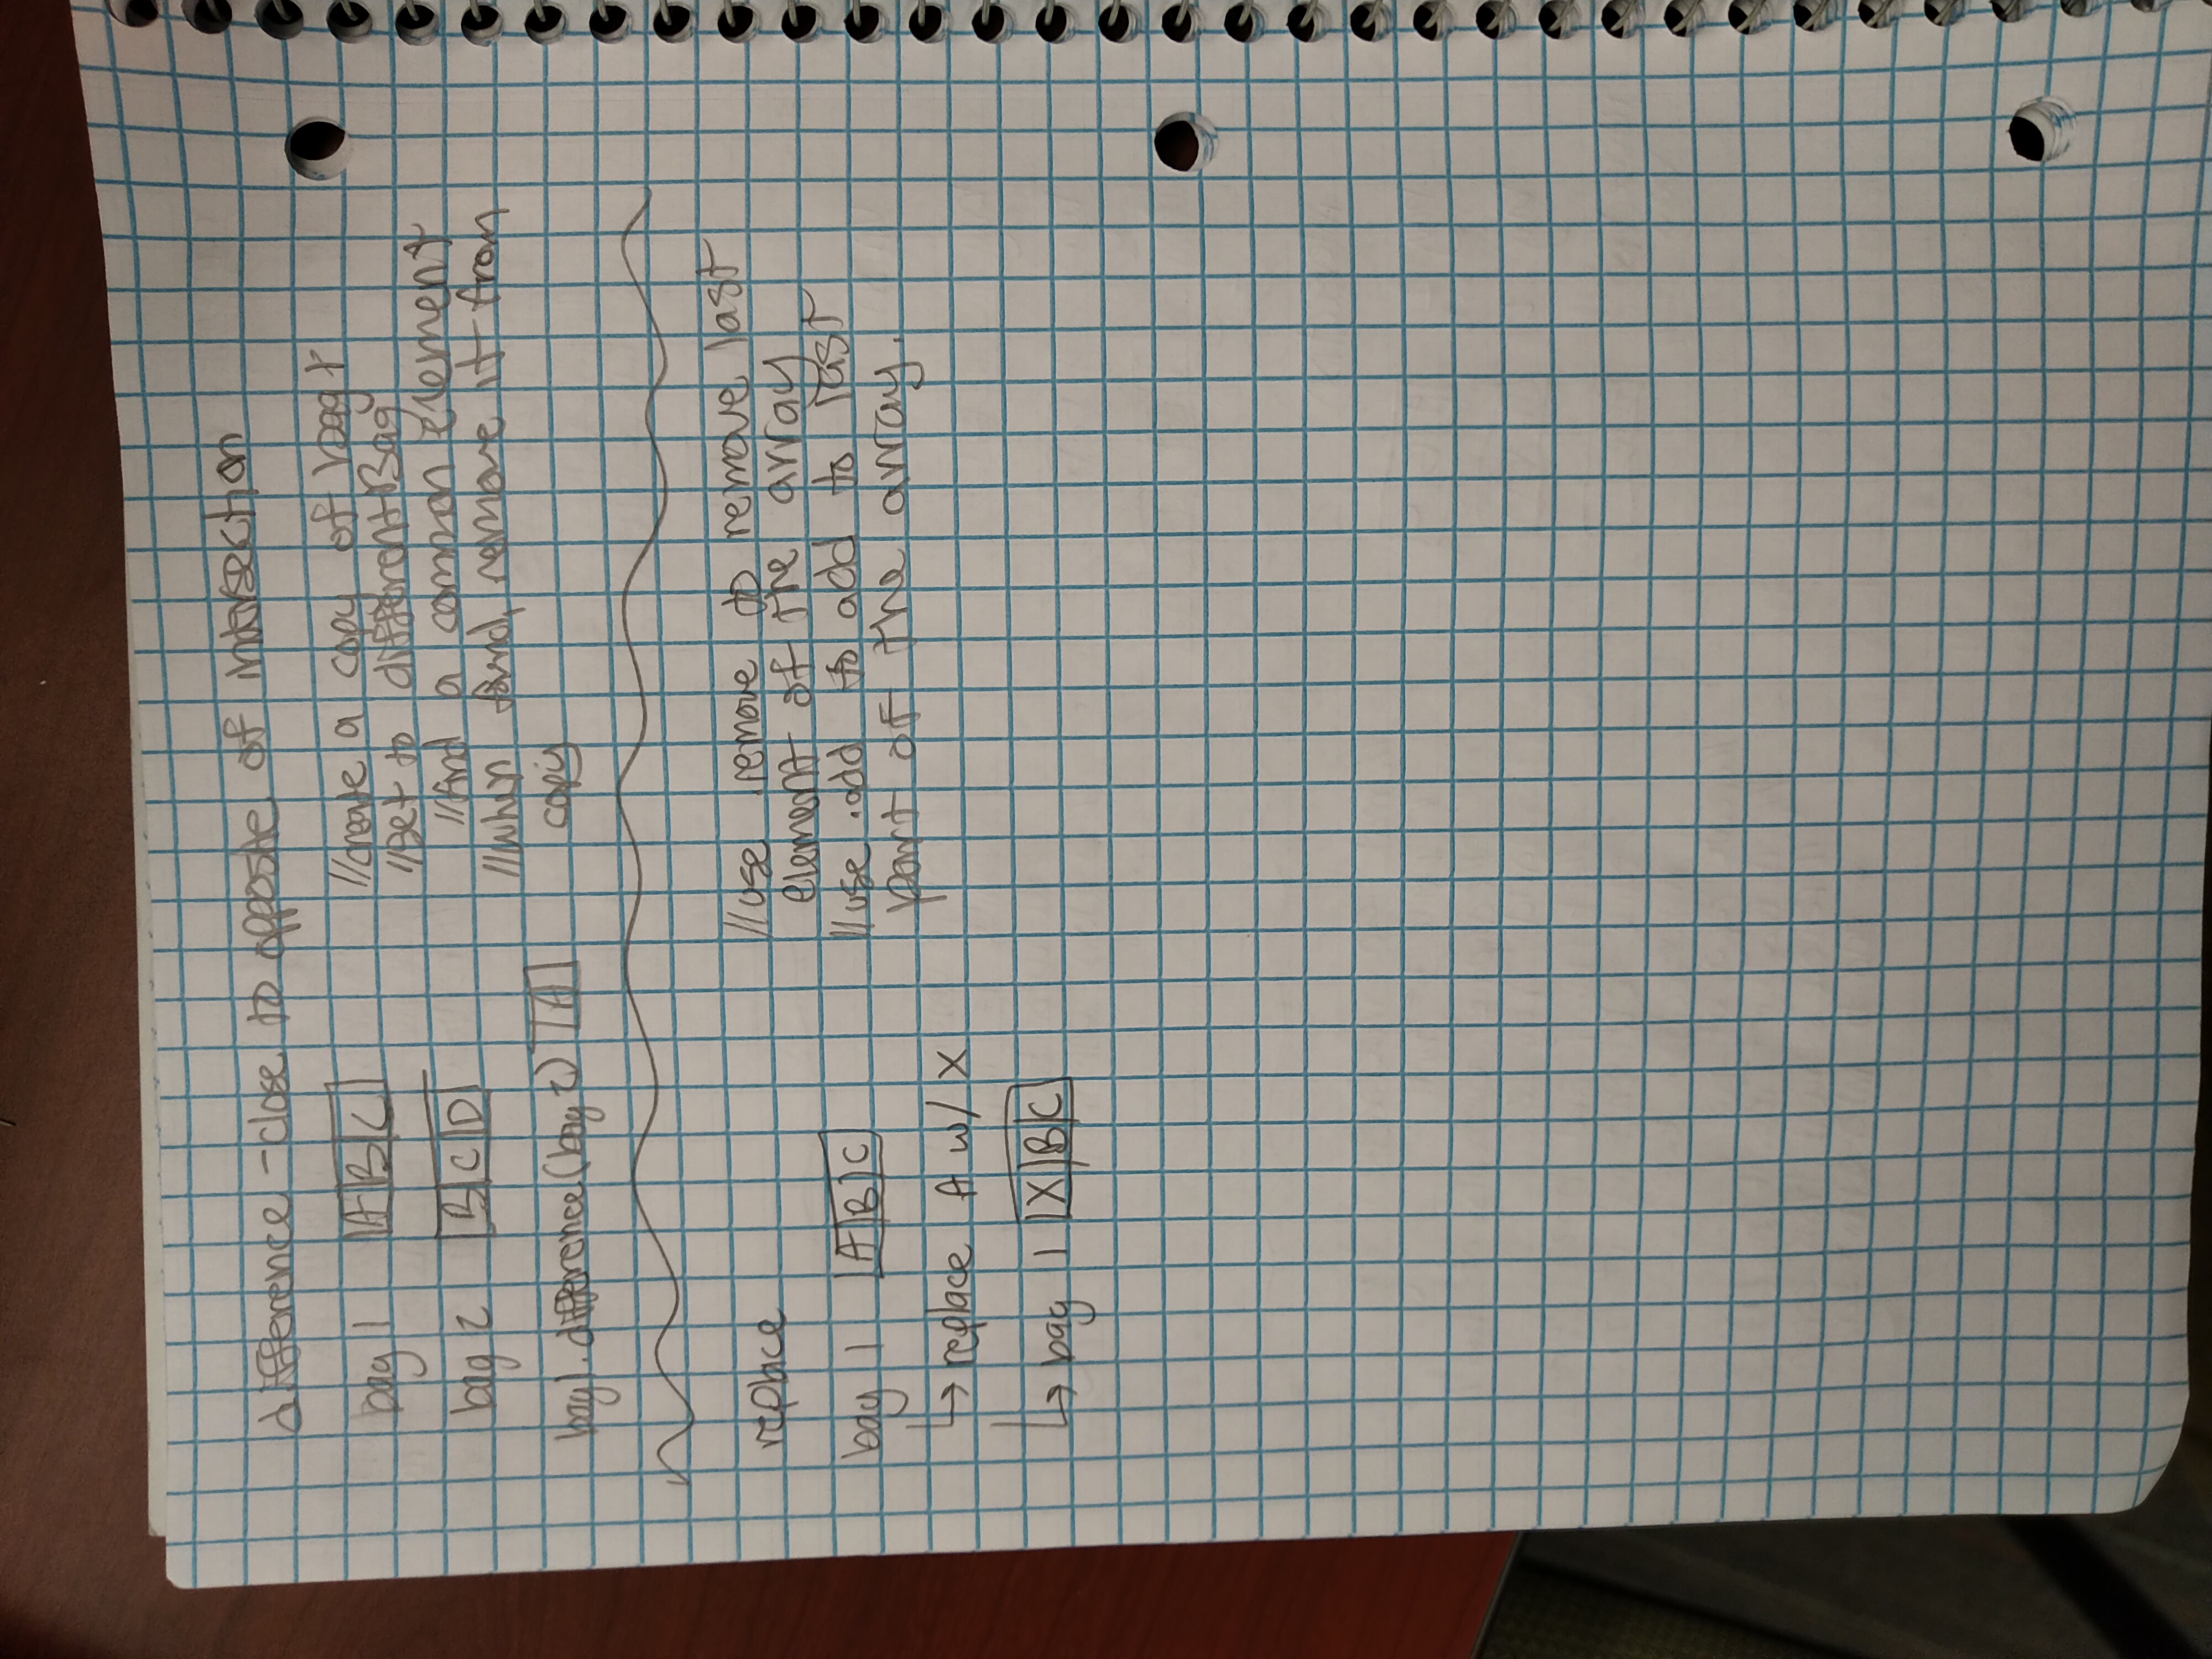 difference - close to opposite of intersection
bag 1 A B C
bag 2 B C D
bag1.difference(bag2) A
//create a copy of bag 1
//set to differentBag
//find a common element
//when found, remove it from
copy
replace
bag 1 A B C
↳ replace A w/ X
↳ bag 1 X B C
//use remove to remove last
element of the array
//use .add to add to last
part of the array.